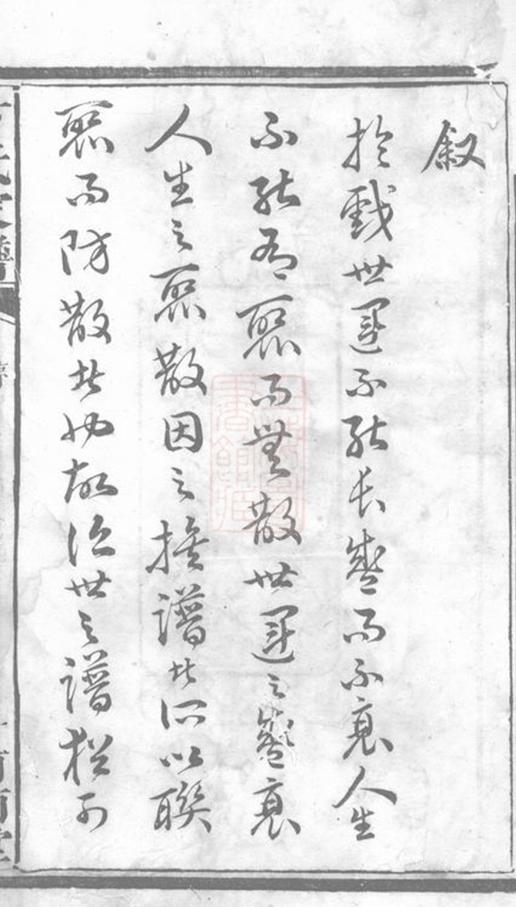 叙
於戲世運不能長盛而不衰人生
不能有聚而無散世運之盛衰
人生之聚散因之族譜者所以聯
聚而防散者也故治世之譜猶可